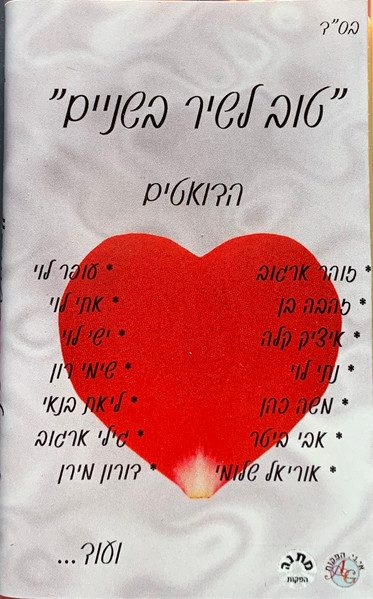 בס"ד
"טוב לשיר בשניים"
הדואטים
* זוהר ארגוב * עופר לוי
* זהבה בן * אתי לוי
* איציק קלה * ישי לוי
* נתי לוי * שימי רון
* משה כהן * ליאת בנאי
* אבי ביטר * גילי ארגוב
* אוריאל שלומי * דורון מירן
ועוד...
מתנה
הפקות
AG